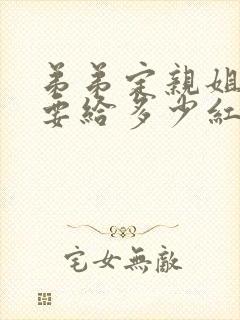 弟弟定親姐
要給多少紅
宅女無敵